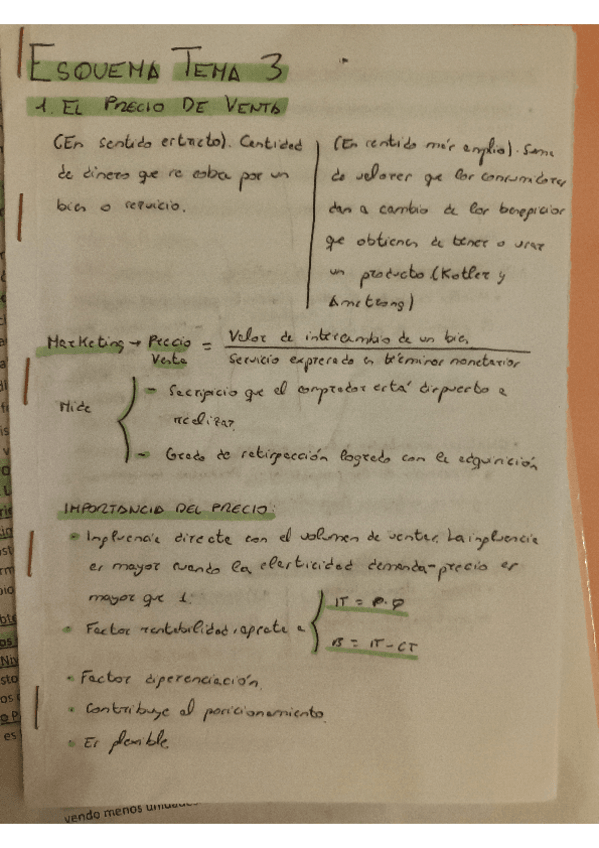 ESQUEMA TEMA 3
1. EL PRECIO DE VENTA
(En sentido estricto). Cantidad
de dinero que se cobra por un
bien o servicio.
(En sentido más amplio). Suma
de valores que los consumidores
dan a cambio de los beneficios
que obtienen de tener o usar
un producto (Kotler y
Amstrong)
Marketing → Precio Venta = Valor de intercambio de un bien
Servicio expresado en términos monetarios
Mide
- Sacrificio que el comprador está dispuesto a
realizar.
- Grado de satisfacción logrado con la adquisición
IMPORTANCIA DEL PRECIO:
• Influencia directa con el volumen de ventas. La influencia
es mayor cuando la elasticidad demanda-precio es
mayor que 1.
• Factor rentabilidad, afecta a
IT = P·Q
B = IT - CT
• Factor diferenciación.
• Contribuye al posicionamiento.
• Es flexible.
vendo menos unidades